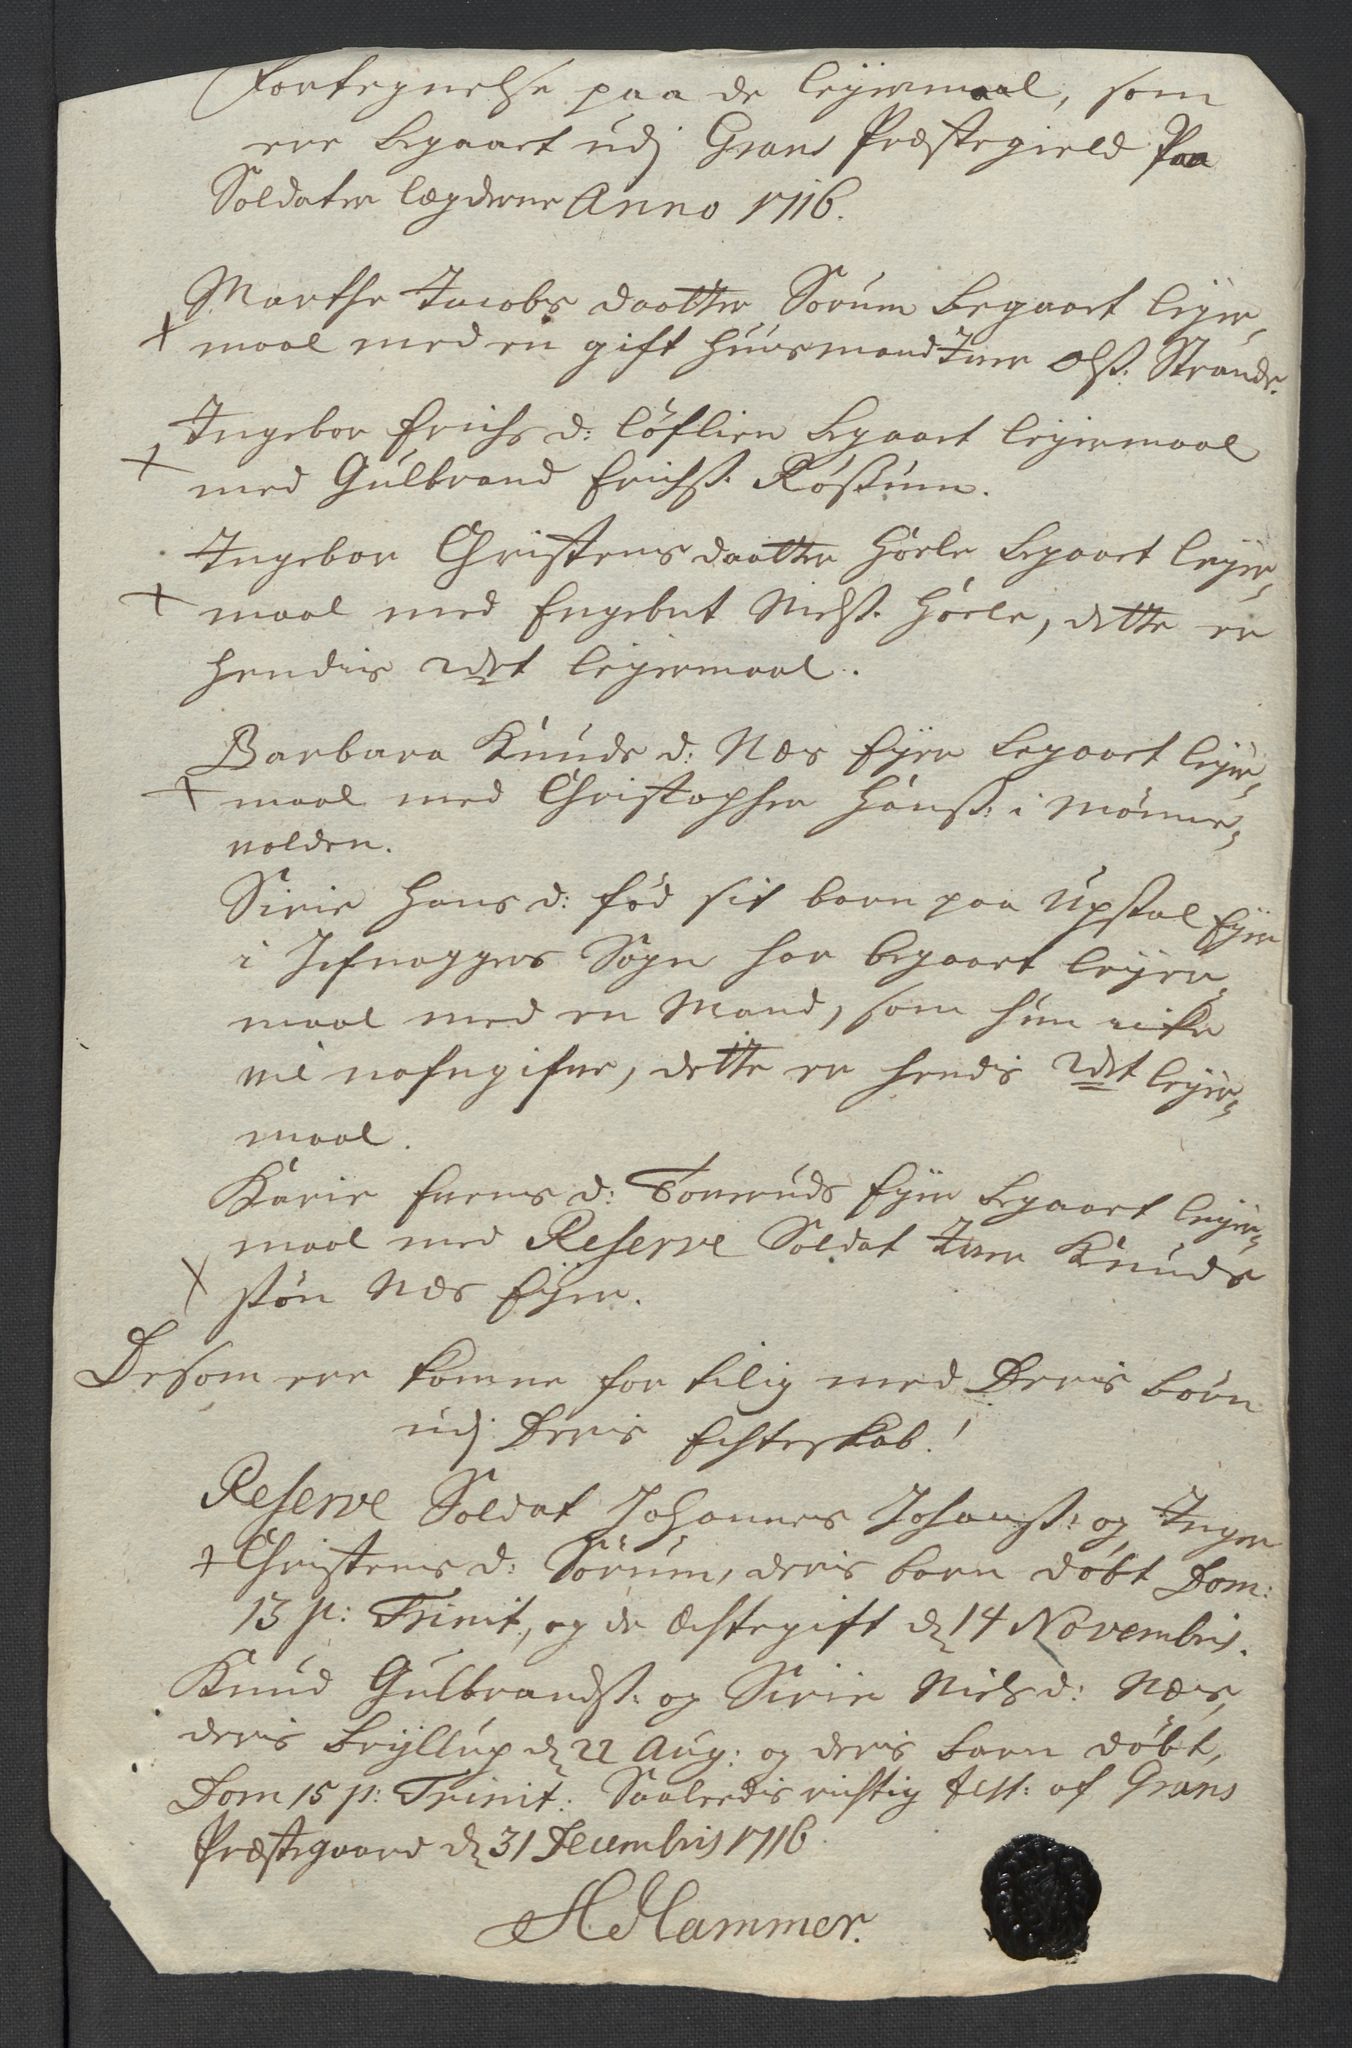 Fortegnelse paa de leyermaal, som
ere begaaet udj Grans Præstegield Paa
Soldater lægderne Anno 1716.
Marthe Jacobs daatter Sorum begaaet leyer,,
+ maal med en gift huusmand Iver Olß: Strande.
Ingebor Erichs d: Løflien begaaet leyermaal
+ med Gulbrand Erichß: Røßum.
Ingebor Christens daatter Høele begaaet leyer,,
+ maal med Engebret Nielß: Høele, dette er
hendis 2det leyermaal.
Barbara Knuds d: Næs Eyer begaaet leyer,,
+ maal med Christopher Hanß: i Mønne,,
volden.
Sirie Hans d: fød sit barn paa Upstal Eyer
i Jefnaggers Sogn har begaaet leyer,,
maal med en Mand, som hun icke
vil nafngifve, dette er hendis 2det leyer,,
maal.
Karie Evens d: Tomeruds Eyer begaaet leyer,,
maal med Reserve Soldat Iver Knud
+ søn Næs Eyer.
De som ere komne for tilig med Deris børn
udj Deris Echteskab!
Reserve Soldat Johannes Johanß: og Inger
+ Christens d: Sørum, deris barn døbt Dom:
13 p: Trinit, og de Ectegift dn 14 Novembris.
Knud Gulbrandß: og Sirie Niels d: Næs,
deris bryllup dn 22 Aug: og deris barn døbt,
Dom 15 p: Trinit: Saaleedis rigtig test: af Grans
Præstegaard dn 31 Decembris 1716
H. Hammer.